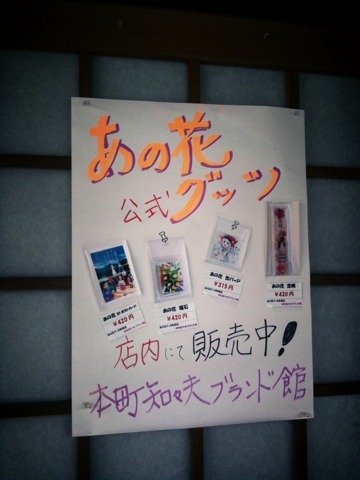 あの花
公式グッツ
あの花
¥420円
あの花 磁石
¥420円
あの花 缶バッジ
¥315円
あの花 定規
¥420円
店内にて販売中!
本町知々夫ブランド館